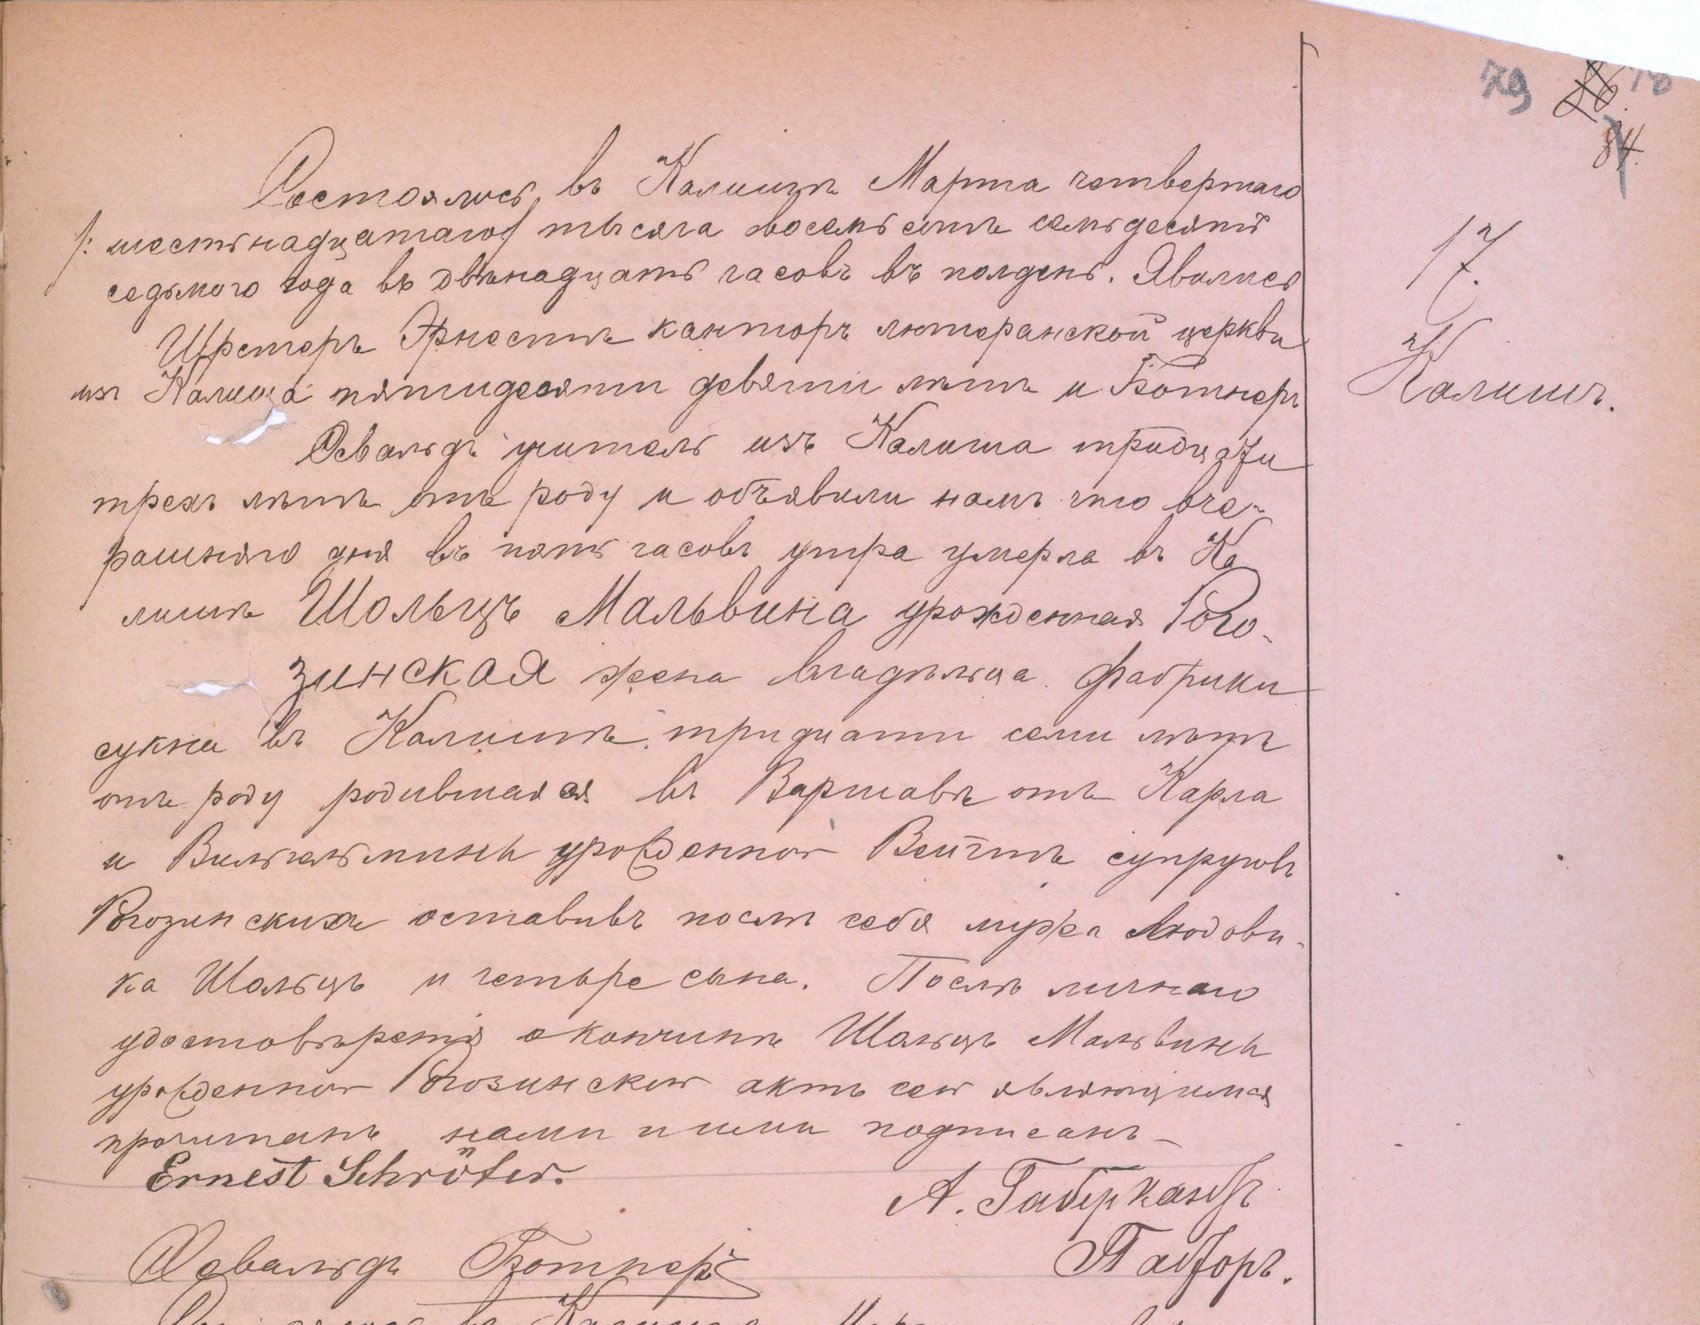 79 78
84.
Состоялось въ Калишѣ Марта четвертаго
/: шестьнадцатаго/ тысяча восемьсотъ семьдесятъ
седьмого года въ двѣнадцать часовъ въ полдень. Явились
Шретеръ Эрнестъ канторъ лютеранской церкви
изъ Калиша пятидесяти девяти лѣтъ и Ботнеръ
Освальдъ учитель изъ Калиша тридцати
трехъ лѣтъ отъ роду и объявили намъ что вче-
рашняго дня въ пять часовъ утра умерла въ Ка
лишѣ Шольцъ Мальвина урожденная Рого-
зинская жена владѣльца фабрики
сукна въ Калишѣ, тридцати семи лѣтъ
отъ роду родившаяся въ Варшавѣ отъ Карла
и Вильгельмины урожденной Вейгтъ супруговъ
Рогозинскихъ оставивъ послѣ себя мужа Людови-
ка Шольцъ и четыре сына. Послѣ личнаго
удостовѣренія о кончинѣ Шольцъ Мальвины
урожденной Рогозинской актъ сей являющимся
прочитанъ нами и ими подписанъ —
Ernest Schröter.
А. Габерканъ
Освальдъ Ботнеръ
Пасторъ.
17.
Калишъ.